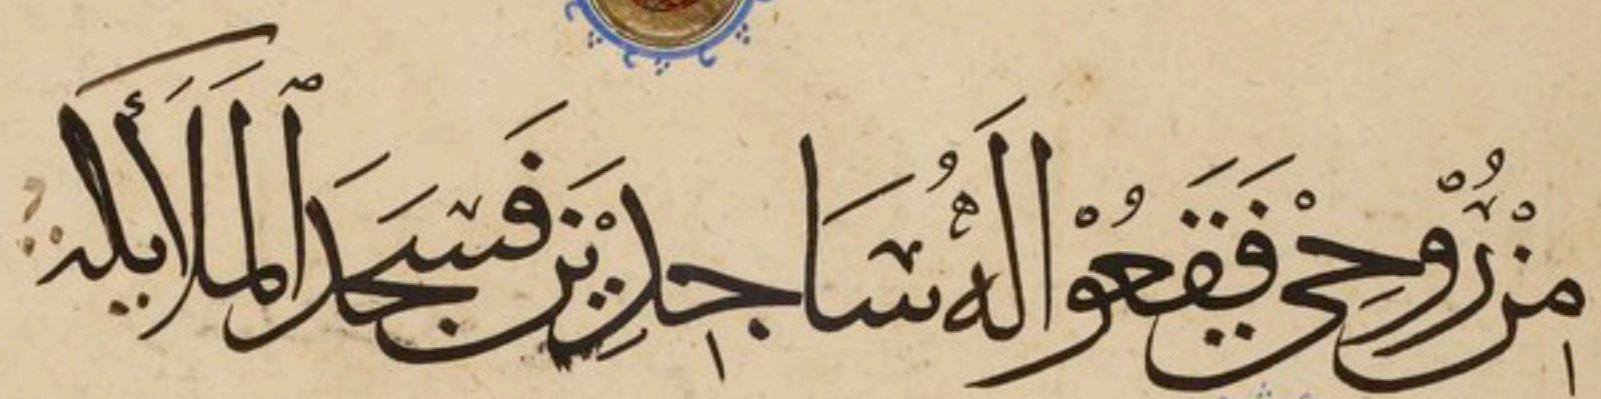 مِنْ رُّوْحِيْ فَقَعُوْا لَهُ سَاجِدِيْنَ فَسَجَدَ الْمَلَأئِكَةُ